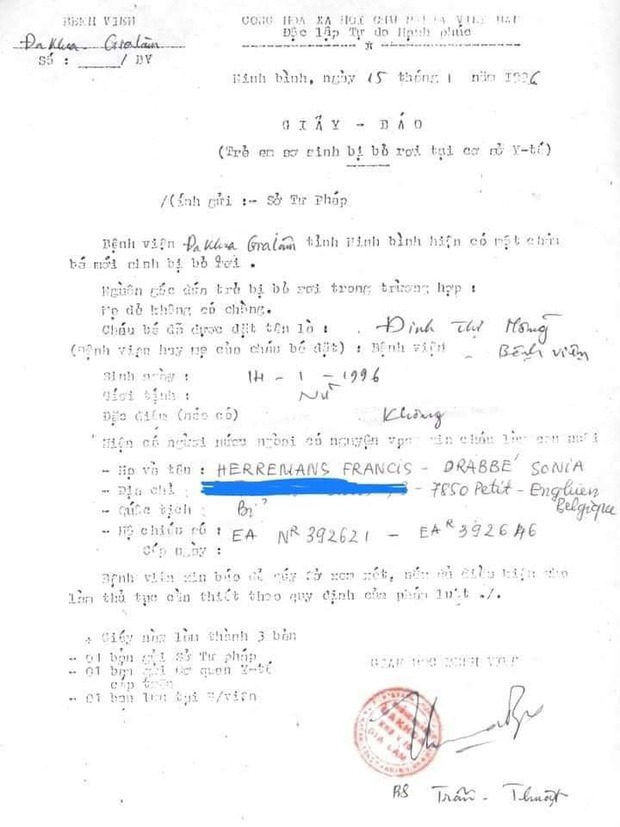 BỆNH VIỆN
Đa Khoa Gia Lâm
Số : /BV
CỘNG HÒA XÃ HỘI CHỦ NGHĨA VIỆT NAM
Độc lập Tự do Hạnh phúc
Ninh bình, ngày 15 tháng 1 năm 1996
GIẤY - BÁO
(Trẻ em sơ sinh bị bỏ rơi tại cơ sở Y-tế)
/(ính gửi :- Sở Tư Pháp
Bệnh viện Đa Khoa Gia Lâm tỉnh Ninh bình hiện có một cháu
bé mới sinh bị bỏ rơi .
Nguồn gốc đứa trẻ bị bỏ rơi trong trường hợp :
Mẹ đẻ không có chồng.
Cháu bé đã được đặt tên là : Đinh Thị Hồng
(Bệnh viện hay mẹ của cháu bé đặt) : Bệnh viện Bệnh viện
Sinh ngày : 14 - 1 - 1996
Giới tính : Nữ
Đặc điểm (nếu có) Không
Hiện có người nước ngoài có nguyện vọng xin cháu làm con nuôi
- Họ và tên : HERREMANS FRANCIS - DRABBÉ SONIA
- Địa chỉ : - 7850 Petit - Enghien
Belgique
- Quốc tịch : Bỉ
- Hộ chiếu số : EA NR 392621 - EA R 392646
Cấp ngày :
Bệnh viện xin báo để quý Sở xem xét, nếu đủ điều kiện cho
làm thủ tục cần thiết theo quy định của pháp luật ./.
* Giấy này làm thành 3 bản
- 01 bản gửi Sở Tư pháp
- 01 bản gửi cơ quan Y-tế
cấp trên
- 01 bản lưu tại B/viện
GIÁM ĐỐC BỆNH VIỆN
ĐA KHOA
GIA LÂM
BS Trần - Thuật